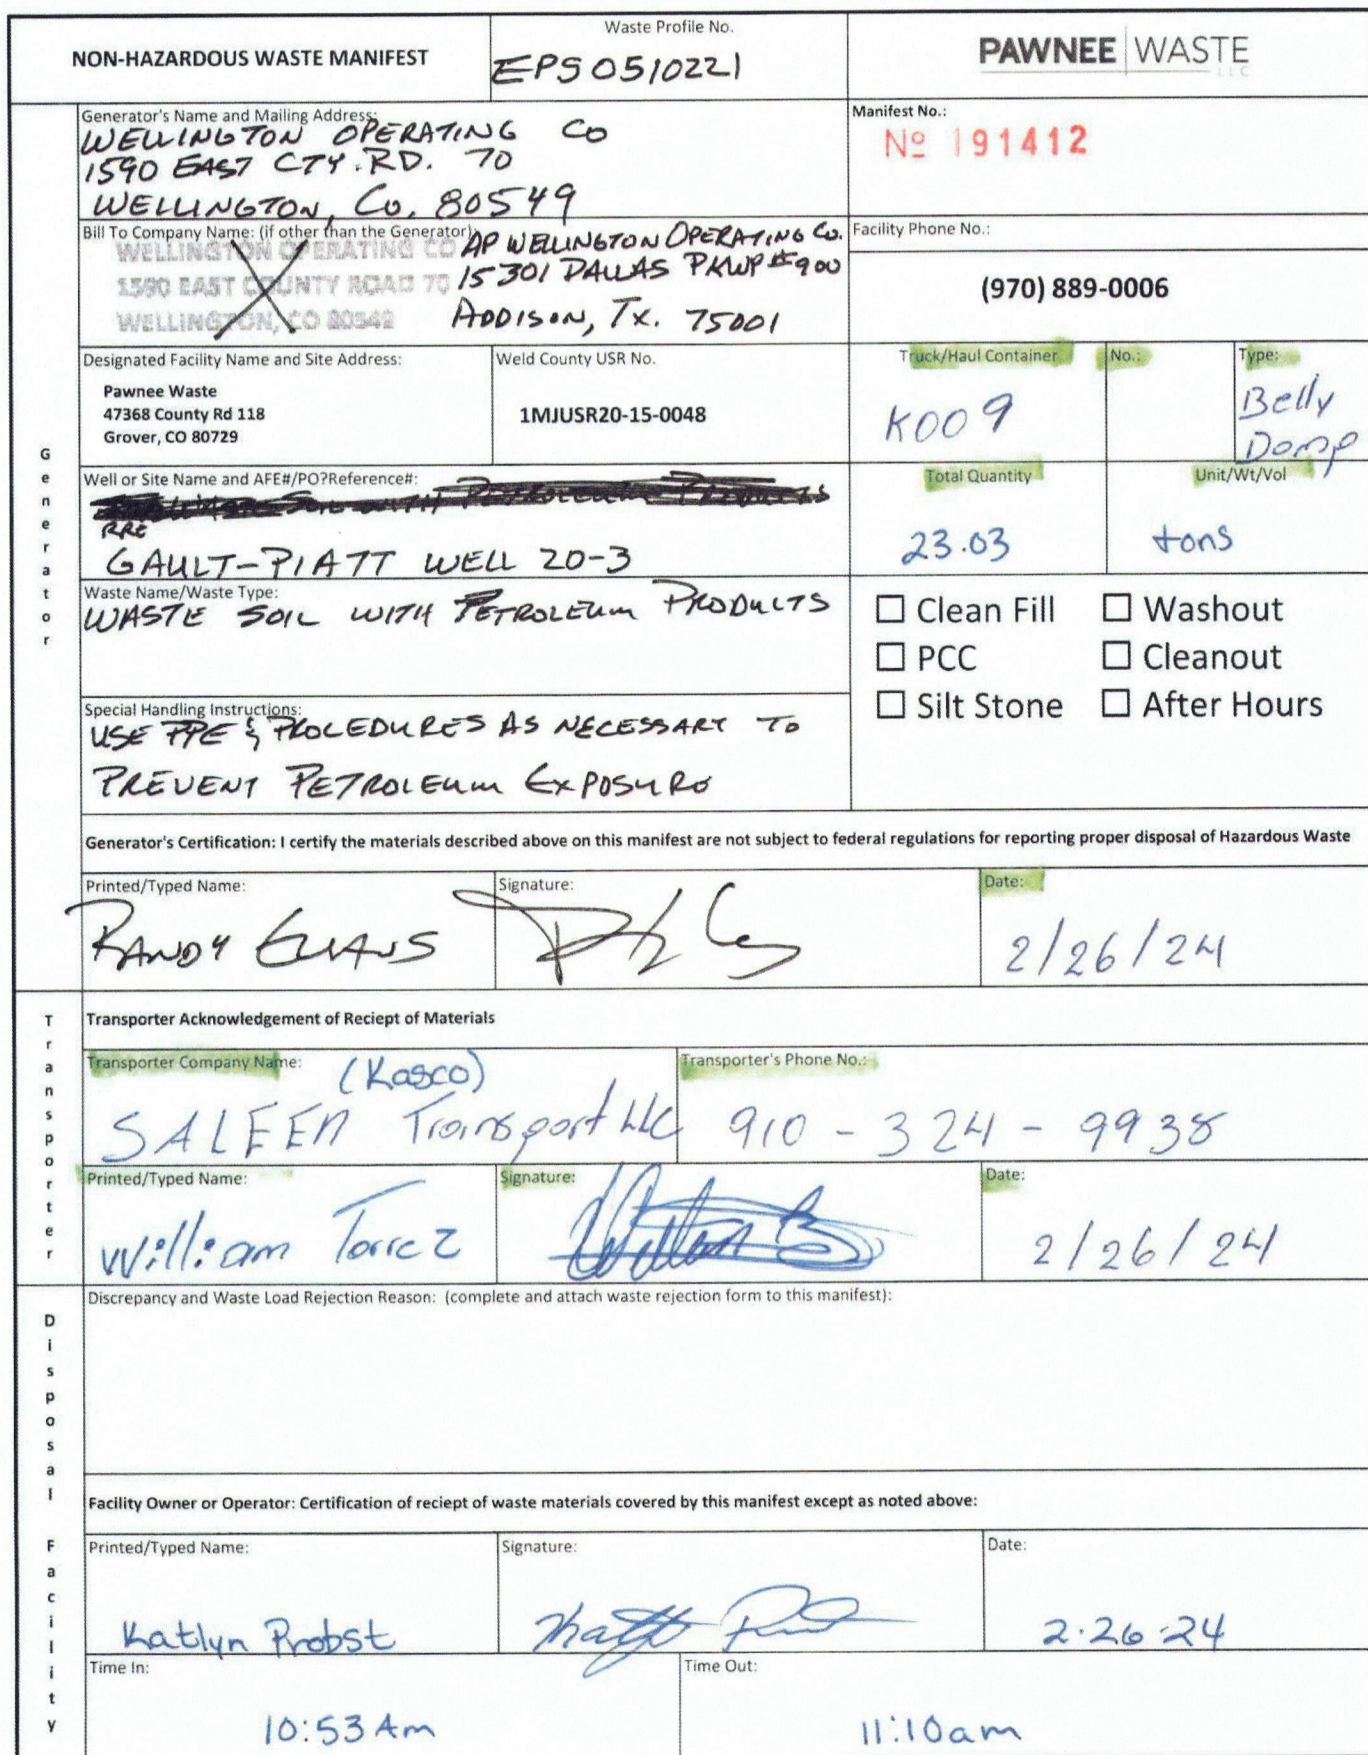 NON-HAZARDOUS WASTE MANIFEST
Waste Profile No.
EPS0510221
PAWNEE WASTE
LLC
Generator's Name and Mailing Address:
WELLINGTON OPERATING CO
1590 EAST CTY. RD. 70
WELLINGTON, Co. 80549
Manifest No.:
Nº 191412
Bill To Company Name: (if other than the Generator)
WELLINGTON OPERATING CO
1590 EAST COUNTY ROAD 70
WELLINGTON, CO 80549
AP WELLINGTON OPERATING Co.
15301 DALLAS PKWP #900
ADDISON, Tx. 75001
Facility Phone No.:
(970) 889-0006
Designated Facility Name and Site Address:
Pawnee Waste
47368 County Rd 118
Grover, CO 80729
Weld County USR No.
1MJUSR20-15-0048
Truck/Haul Container
K009
No.:
Type:
Belly
Domp
Well or Site Name and AFE#/PO?Reference#:
RRE
GAULT-PIATT WELL 20-3
Total Quantity
23.03
Unit/Wt/Vol
tons
Waste Name/Waste Type:
WASTE SOIL WITH PETROLEUM PRODUCTS
☐ Clean Fill ☐ Washout
☐ PCC ☐ Cleanout
☐ Silt Stone ☐ After Hours
Special Handling Instructions:
USE PPE & PROCEDURES AS NECESSARY TO
PREVENT PETROLEUM EXPOSURE
Generator's Certification: I certify the materials described above on this manifest are not subject to federal regulations for reporting proper disposal of Hazardous Waste
Printed/Typed Name:
RANDY EVANS
Signature:
Date:
2/26/24
Transporter Acknowledgement of Reciept of Materials
Transporter Company Name:
(Kasco)
SALEEN Transport LLC
Transporter's Phone No.:
910-324-9938
Printed/Typed Name:
William Torrez
Signature:
Date:
2/26/24
Discrepancy and Waste Load Rejection Reason: (complete and attach waste rejection form to this manifest):
Facility Owner or Operator: Certification of reciept of waste materials covered by this manifest except as noted above:
Printed/Typed Name:
Katlyn Probst
Signature:
Date:
2.26.24
Time In:
10:53 Am
Time Out:
11:10am
Generator
Transporter
Disposal Facility